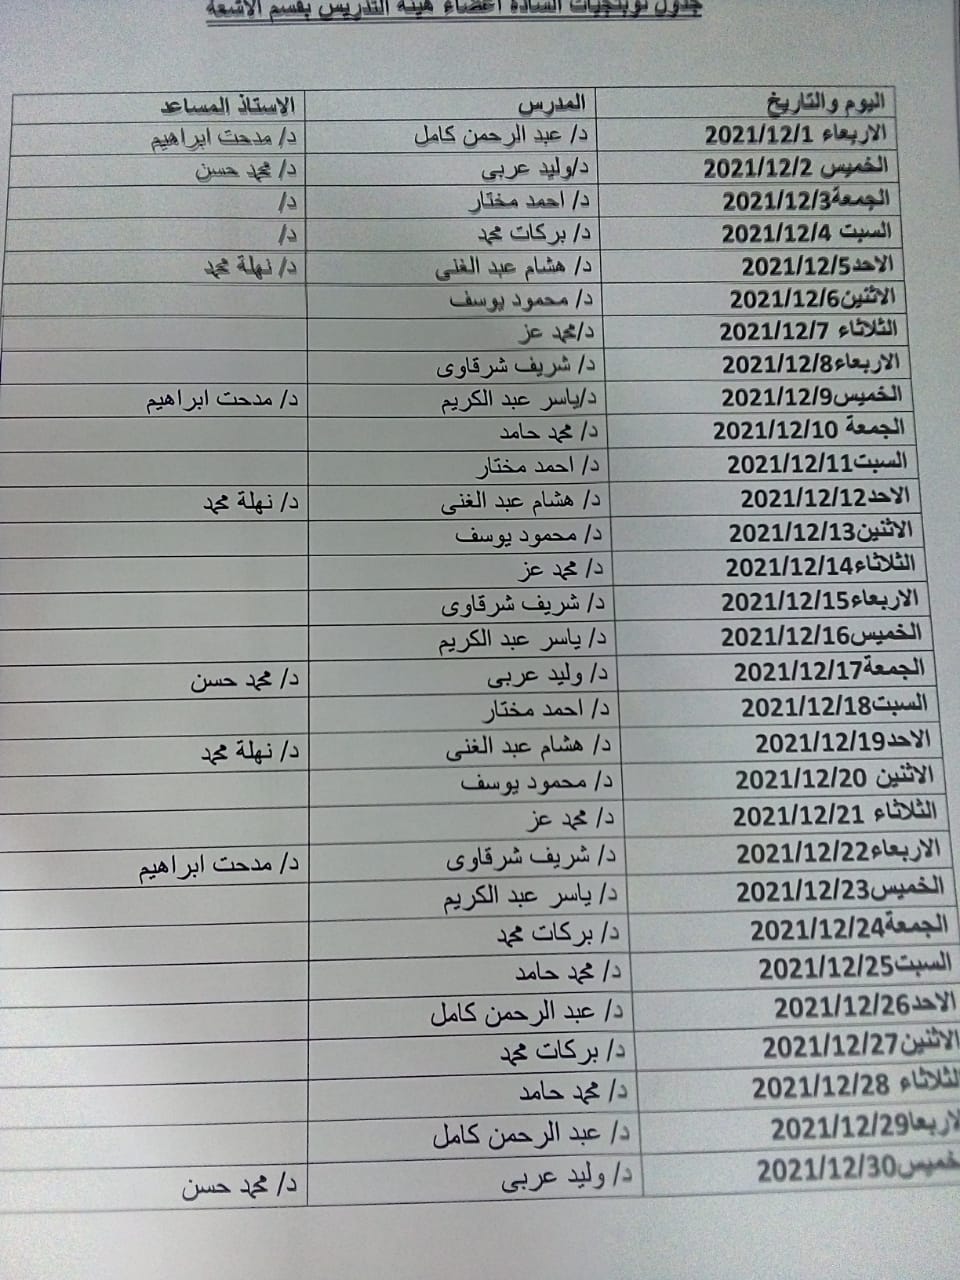 جدول نوبتجيات السادة اعضاء هيئة التدريس بقسم الاشعة
اليوم والتاريخ المدرس الاستاذ المساعد
الاربعاء 2021/12/1 د/ عبد الرحمن كامل د/ مدحت ابراهيم
الخميس 2021/12/2 د/وليد عربى د/ محمد حسن
الجمعة2021/12/3 د/ احمد مختار د/
السبت 2021/12/4 د/ بركات محمد د/
الاحد2021/12/5 د/ هشام عبد الغنى د/ نهلة محمد
الاثنين2021/12/6 د/ محمود يوسف
الثلاثاء 2021/12/7 د/محمد عز
الاربعاء2021/12/8 د/ شريف شرقاوى
الخميس2021/12/9 د/ياسر عبد الكريم د/ مدحت ابراهيم
الجمعة 2021/12/10 د/ محمد حامد
السبت2021/12/11 د/ احمد مختار
الاحد2021/12/12 د/ هشام عبد الغنى د/ نهلة محمد
الاثنين2021/12/13 د/ محمود يوسف
الثلاثاء2021/12/14 د/ محمد عز
الاربعاء2021/12/15 د/ شريف شرقاوى
الخميس2021/12/16 د/ ياسر عبد الكريم
الجمعة2021/12/17 د/ وليد عربى د/ محمد حسن
السبت2021/12/18 د/ احمد مختار
الاحد2021/12/19 د/ هشام عبد الغنى د/ نهلة محمد
الاثنين 2021/12/20 د/ محمود يوسف
الثلاثاء 2021/12/21 د/ محمد عز
الاربعاء2021/12/22 د/ شريف شرقاوى د/ مدحت ابراهيم
الخميس2021/12/23 د/ ياسر عبد الكريم
الجمعة2021/12/24 د/ بركات محمد
السبت2021/12/25 د/ محمد حامد
الاحد2021/12/26 د/ عبد الرحمن كامل
الاثنين2021/12/27 د/ بركات محمد
الثلاثاء 2021/12/28 د/ محمد حامد
لاربعا2021/12/29 د/ عبد الرحمن كامل
خميس2021/12/30 د/ وليد عربى د/ محمد حسن